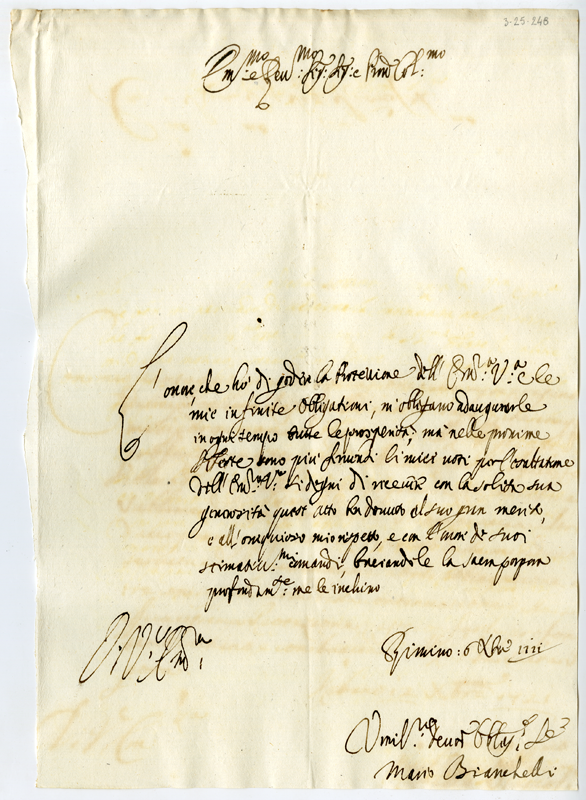 3-25-248
Em.mo e Rev.mo Sig.r Sig.r e Pron Col.mo
L'onore, che hò di godere la Protezione dell' Em.a V.a e le
mie infinite Obligationi, m'obligano adaugurarle
in ogni tempo tutte le prosperità, mà nelle prossime
Feste sono più i miei voti
dell' Em.a V.a si degni di ricevere con la solita sua
generosità quest' atto ben dovuto al suo gran merito,
e all' ossequioso mio rispetto, e con l'onor de suoi
stimatis.mi comandi, baciandole la sacra porpora
profondam.te me le inchino
D. V. Em.a
Rimino: 6 Xbre
Umil.mo Devot. Oblig.
Mario Bianchelli